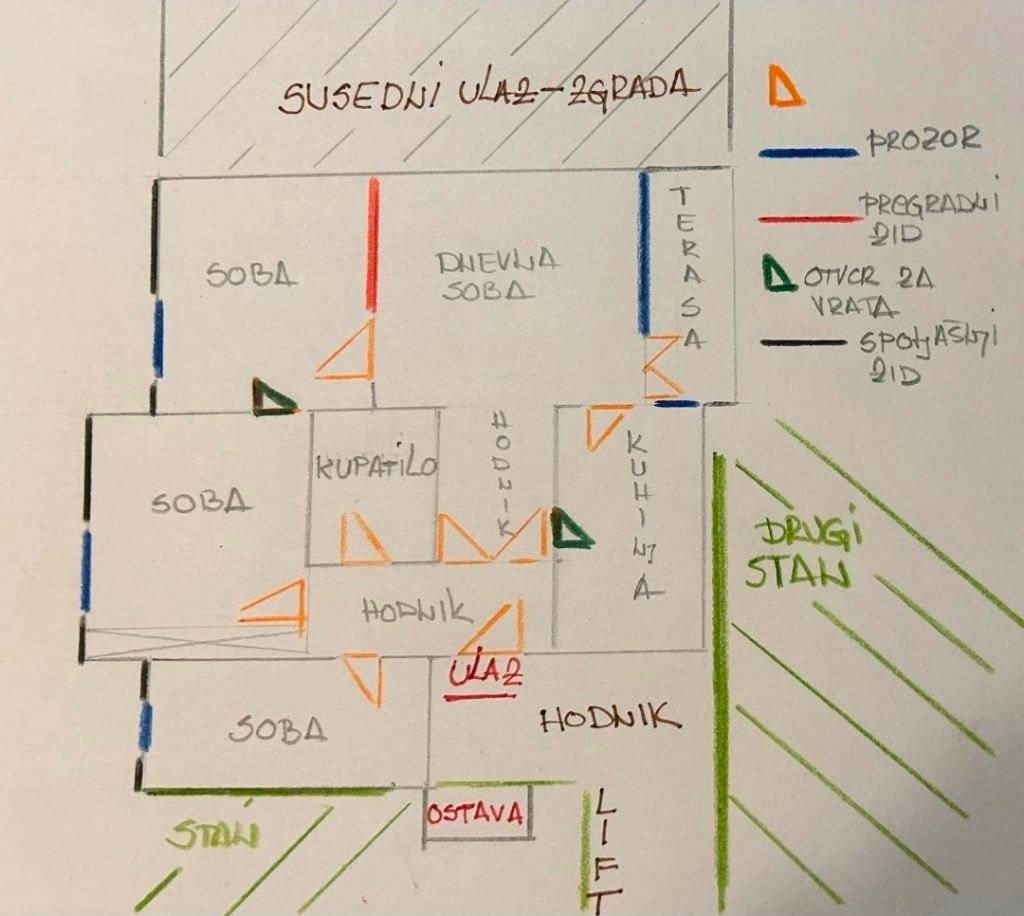 SUSEDNI ULAZ-ZGRADA
PROZOR
PREGRADNI
ZID
OTVOR ZA
VRATA
SPOLJAŠNJI
ZID
TERASA
SOBA
DNEVNA
SOBA
KUPATILO
HODNIK
KUHINJA
SOBA
HODNIK
DRUGI
STAN
ULAZ
SOBA
HODNIK
STAN
OSTAVA
LIFT